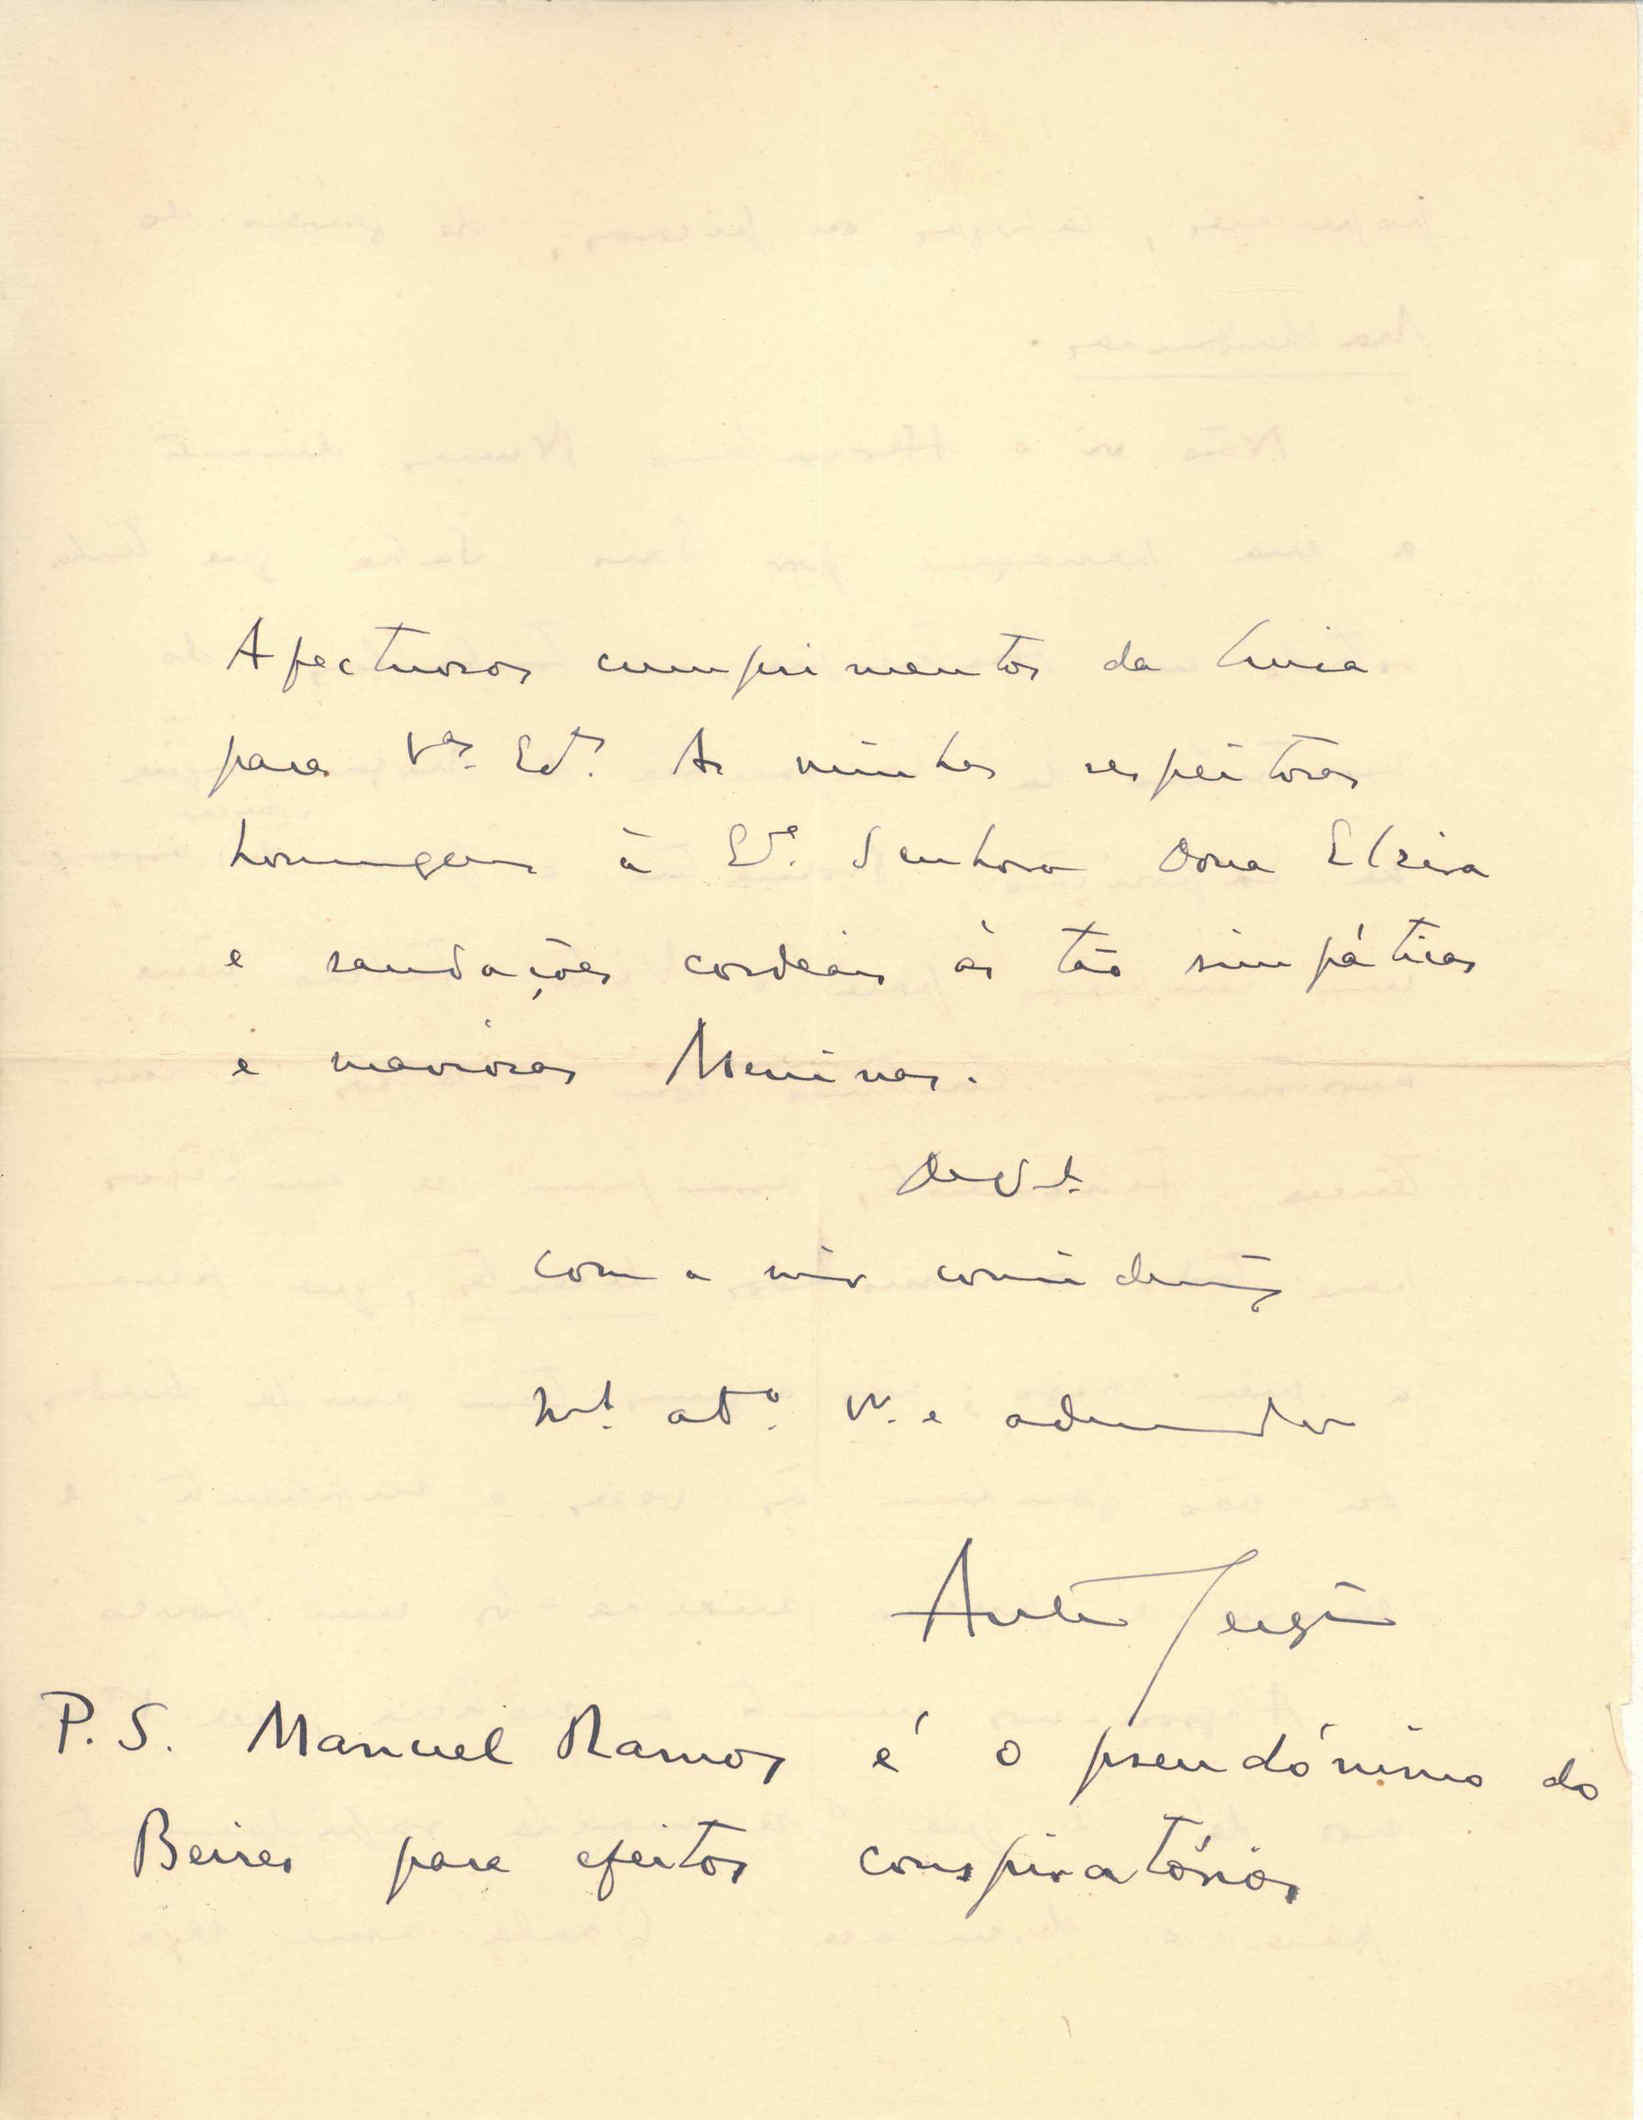 Afectuosos cumprimentos da Luísa
para V.as Ex.as As minhas respeitosas
homenagens à Ex.a Senhora Dona Elzira
e saudações cordeais às tão simpáticas
e maviosas Meninas.
De V. Ex.
com a maior consideração
m.t. at.o V.or e admirador
António Sérgio
P.S. Manuel Ramos é o pseudónimo do
Beires para efeitos conspiratórios